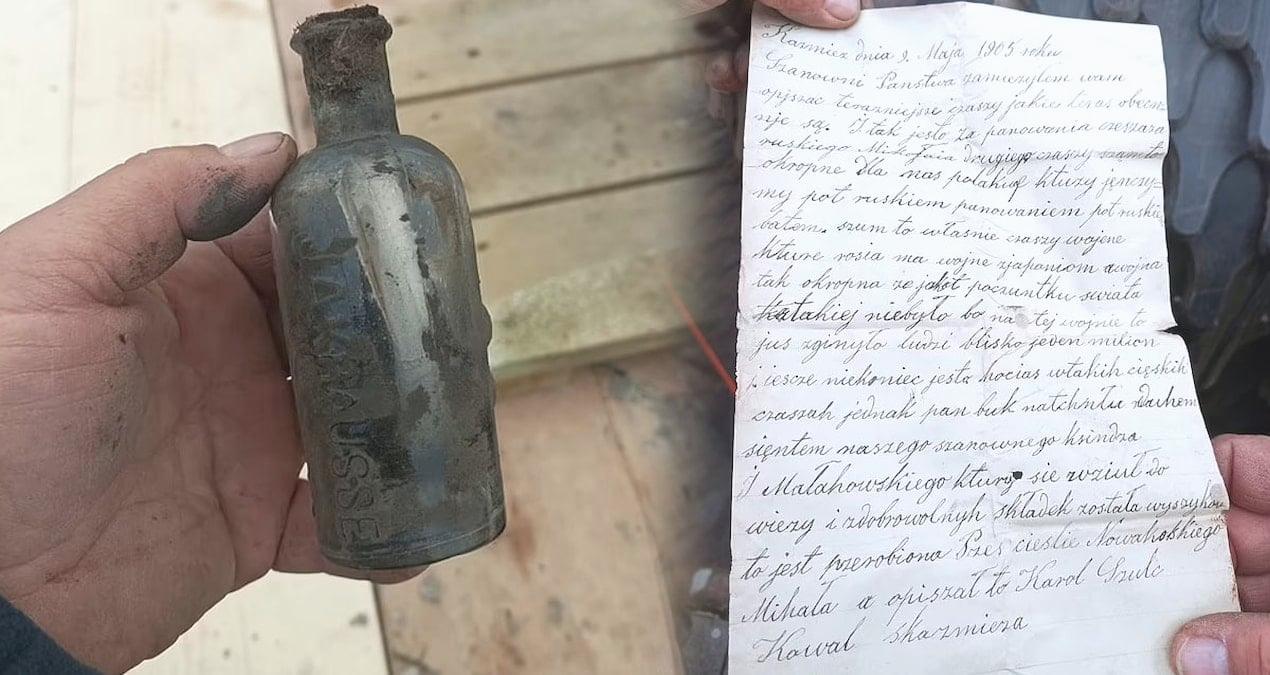 Kazmież dnia 9. Maja 1905 roku
Szanowni Państwa zamieżyłem wam
opjszać terazniejsze czaszy jakie teras obecz=
nje są. I tak jesto za panowania czeszaza
ruskiego Mikołaia drugiego czaszy szamto
okropne Dla nas polakuf kturzy jenczy=
my pot ruskiem panowaniem pot ruskie
batem. szum to właśnie czaszy wojene
kture rosia ma wojne zjapaniom awojna
tak okropna że jakot poczuntku swiata
takiej niebyło bo na tej wojnie to
jus zginyło ludzi blisko jeden milion
j iescze niekoniec jesta hocias wtakih cięskih
czaszah jednak pan buk natchnłu duchem
sięntem naszego szanownego ksindza
J Małahowskiego ktury sie wziuł do
wiezy i zdobrowolnyh składek została
to jest pzerobiona Pszes cieslie Nowakoskiego
Mihała a opiszał to Karol Szulc
Kowal skazmieza